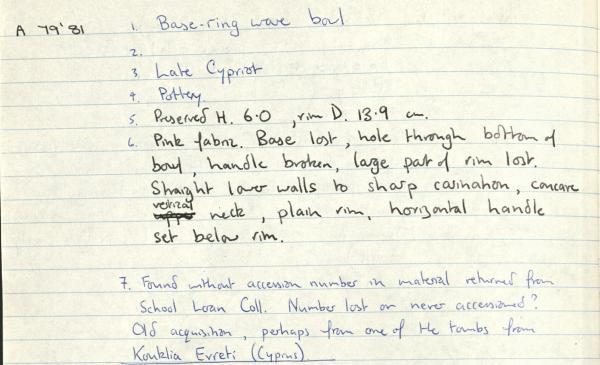 A 79'81
1. Base-ring ware bowl
2.
3. Late Cypriot
4. Pottery.
5. Preserved H. 6.0 , rim D. 13.9 cm.
6. Pink fabric. Base lost, hole through bottom of
bowl, handle broken, large part of rim lost.
Straight lower walls to sharp carination, concave
vertical
upper neck, plain rim, horizontal handle
set below rim.
7. Found without accession number in material returned from
School Loan Coll. Number lost or never accessioned?
Old acquisition, perhaps from one of the tombs from
Kouklia Evreti (Cyprus).